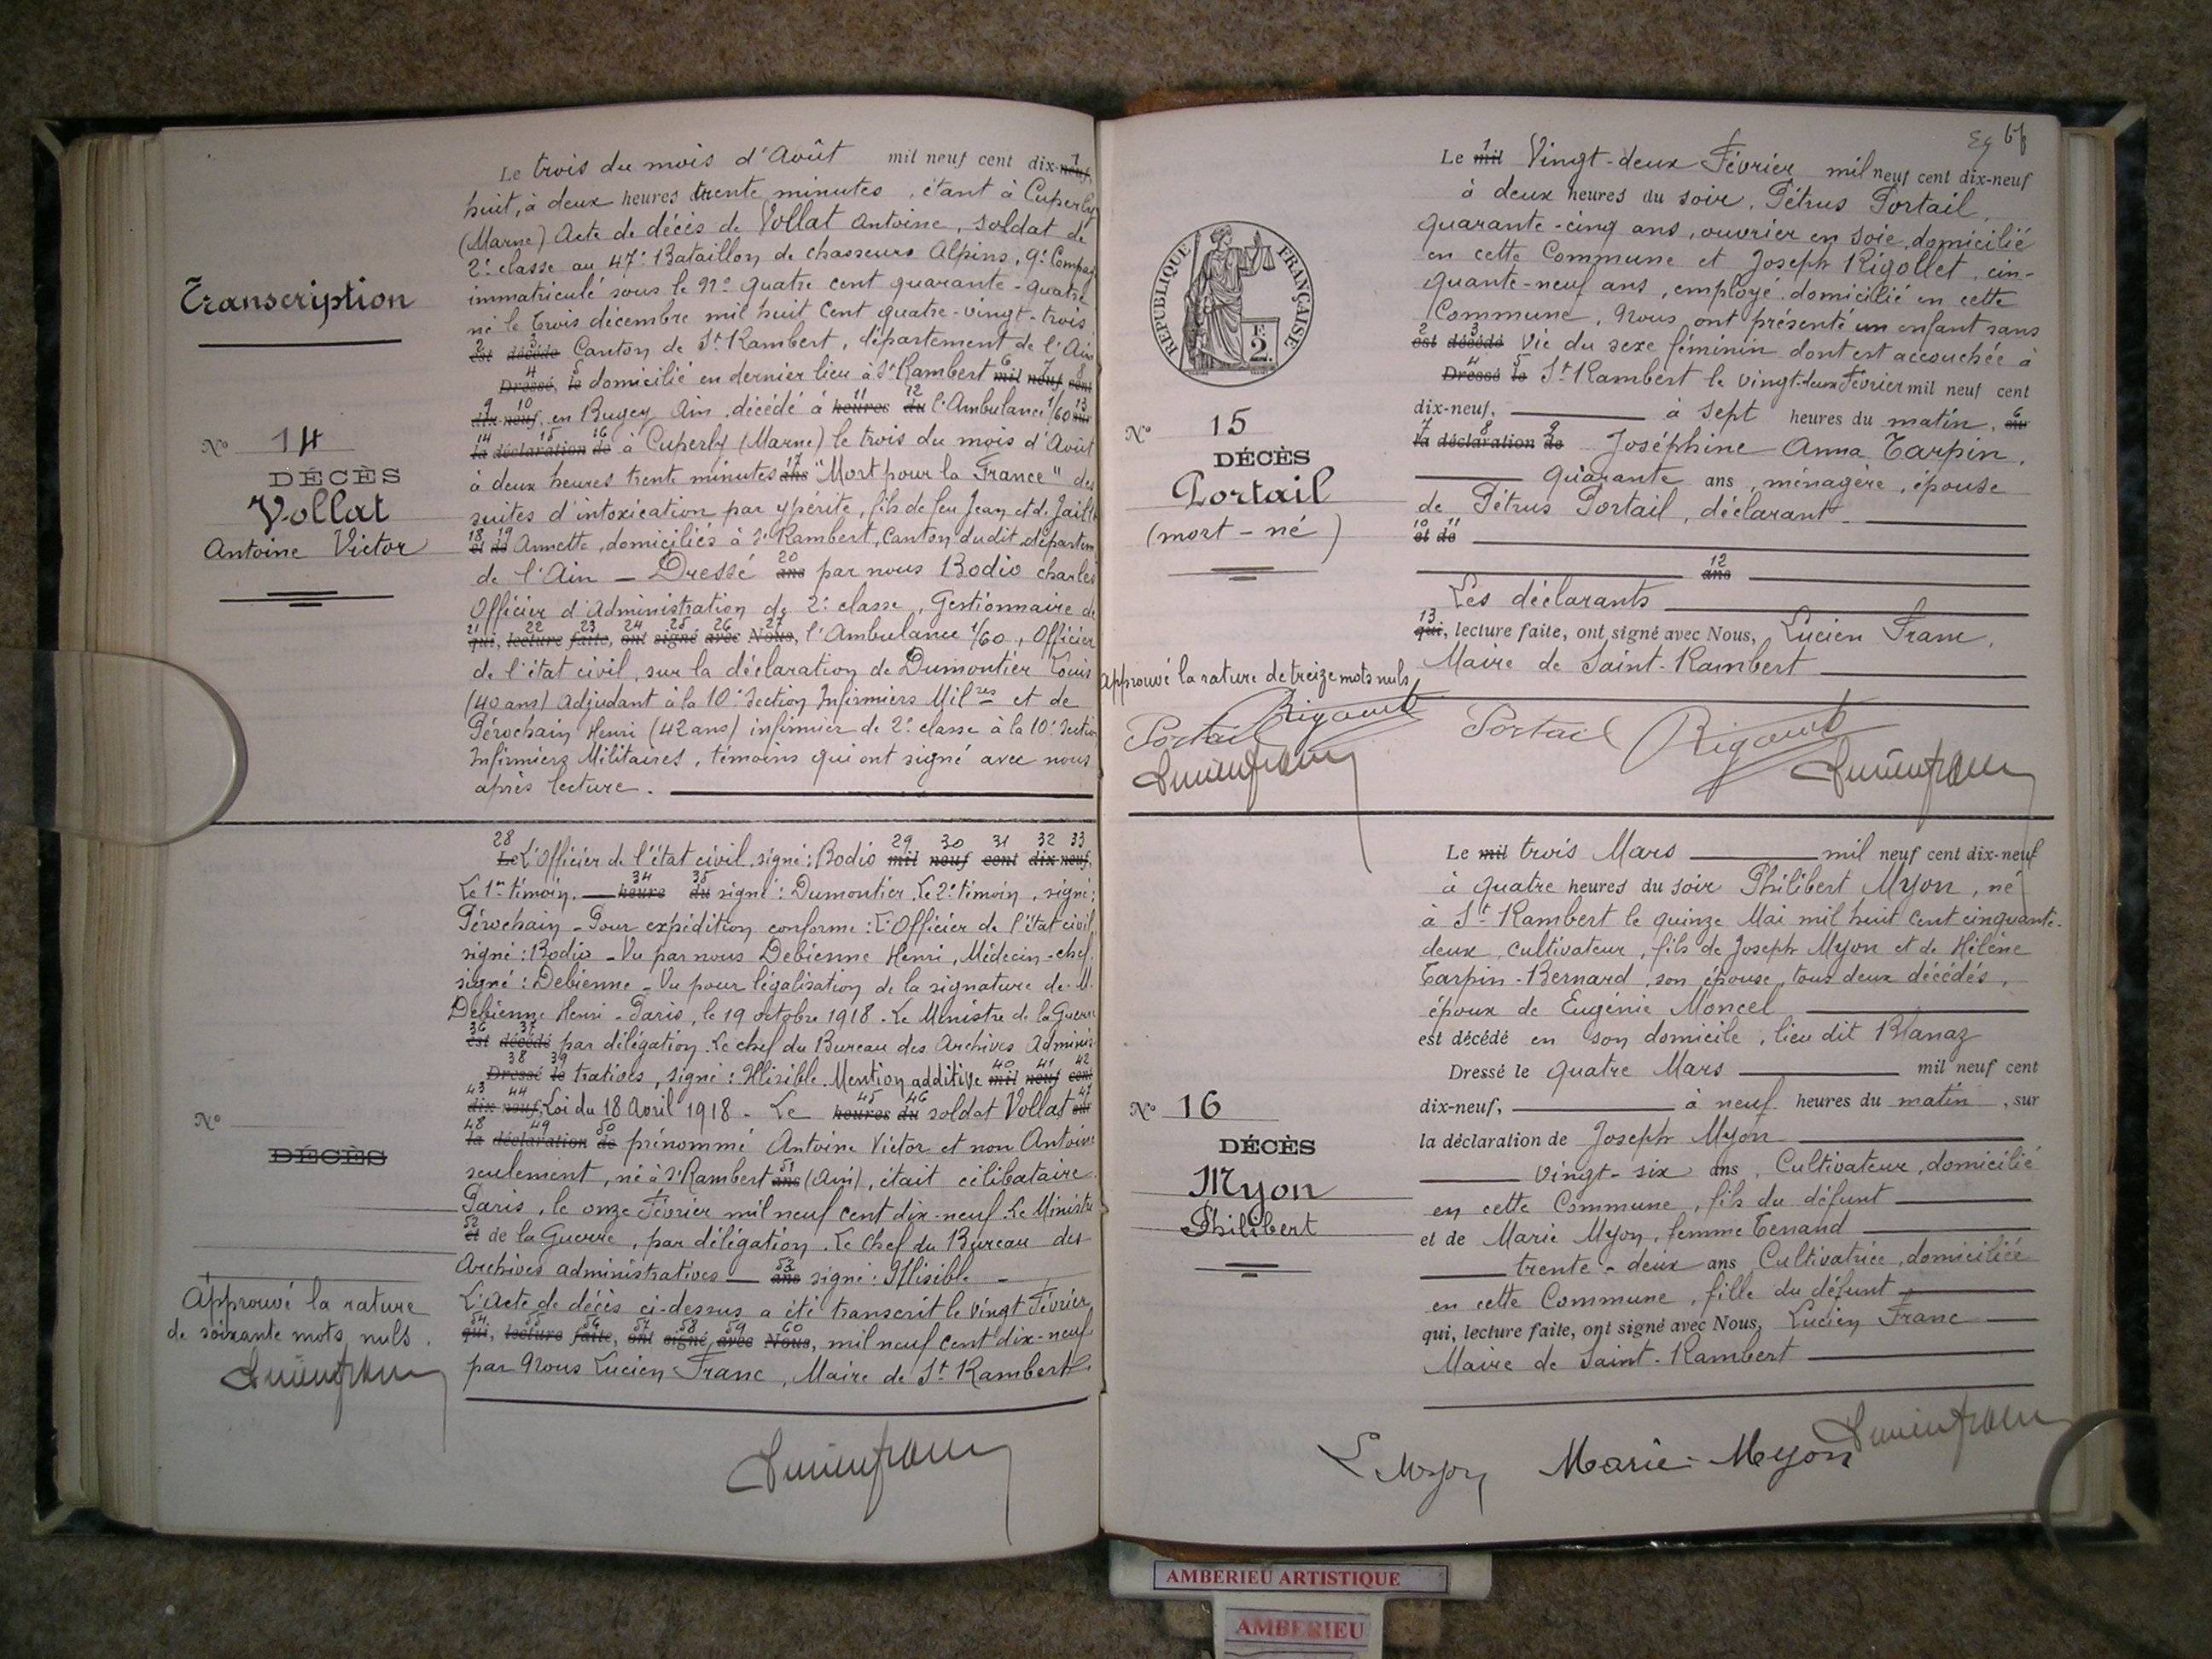 Transcription
Nº 14
DÉCÈS
Vollat
Antoine Victor
Le trois du mois d'Août mil neuf cent dix-neuf,
huit, à deux heures trente minutes, étant à Cuperly
(Marne) Acte de décès de Vollat Antoine, soldat de
2e classe au 47e Bataillon de chasseurs Alpins, 9e Compag
immatriculé sous le No quatre cent quarante-quatre
né le trois décembre mil huit cent quatre-vingt-trois
est décédé Canton de St Rambert, département de l'Ain
Dressé, le domicilié en dernier lieu à St Rambert mil neuf cent
dix-neuf, en Bugey Ain, décédé à heures du l'Ambulance 1/60 sur
la déclaration de à Cuperly (Marne) le trois du mois d'Août
à deux heures trente minutes ans "Mort pour la France" des
suites d'intoxication par ypérite, fils de feu Jean et de Jaill
et de Annette, domiciliés à St Rambert, Canton dudit départem
de l'Ain — Dressé ans par nous Bodio charles
Officier d'Administration de 2e classe, Gestionnaire de
qui, lecture faite, ont signé avec Nous, l'Ambulance 1/60, Officier
de l'état civil, sur la déclaration de Dumontier Louis
(40 ans) Adjudant à la 10e Section Infirmiers Milres et de
Pérochain Henri (42 ans) infirmier de 2e classe à la 10e Section
Infirmiers Militaires, témoins qui ont signé avec nous
après lecture.
Nº
DÉCÈS
Approuvé la rature
de soixante mots nuls.
Le L'Officier de l'état civil, signé: Bodio mil neuf cent dix-neuf,
Le 1er témoin, heure du signé: Dumontier. Le 2e témoin, signé:
Pérochain - Pour expédition conforme: L'Officier de l'état civil
signé: Bodio - Vu par nous Debienne Henri, Médecin-chef,
signé: Debienne - Vu pour légalisation de la signature de M.
Debienne Henri - Paris, le 19 octobre 1918 - Le Ministre de la Guerre
est décédé par délégation. Le chef du Bureau des Archives Adminis-
Dressé le tratives, signé: Illisible. Mention additive mil neuf cent
dix-neuf, Loi du 18 Avril 1918 - Le heures du soldat Vollat sur
la déclaration de prénommé Antoine Victor et non Antoine
seulement, né à St Rambert ans (Ain), était célibataire
Paris, le onze Février mil neuf cent dix-neuf. Le Ministre
et de la Guerre, par délégation. Le Chef du Bureau des
Archives administratives — ans signé: Illisible -
L'Acte de décès ci-dessus a été transcrit le vingt Février
qui, lecture faite, ont signé avec Nous, mil neuf cent dix-neuf
par Nous Lucien Franc, Maire de St Rambert
RÉPUBLIQUE FRANÇAISE
E.
2.
Nº 15
DÉCÈS
Portail
(mort-né)
Le mil Vingt-deux Février mil neuf cent dix-neuf
à deux heures du soir, Pétrus Portail,
quarante-cinq ans, ouvrier en soie, domicilié
en cette Commune et Joseph Rigollet, cin-
quante-neuf ans, employé, domicilié en cette
Commune, Nous ont présenté un enfant sans
est décédé Vie du sexe féminin dont est accouchée à
Dressé le St Rambert le vingt-deux Février mil neuf cent
dix-neuf, à sept heures du matin, sur
la déclaration de Joséphine Anna Tarpin,
quarante ans, ménagère, épouse
de Pétrus Portail, déclarant
et de
ans
Les déclarants
qui, lecture faite, ont signé avec Nous, Lucien Franc,
Maire de Saint-Rambert
Approuvé la rature de treize mots nuls
Portail
Portail
Nº 16
DÉCÈS
Myon
Philibert
Le mil trois Mars mil neuf cent dix-neuf
à quatre heures du soir Philibert Myon, né
à St Rambert le quinze Mai mil huit cent cinquante-
deux, cultivateur, fils de Joseph Myon et de Hélène
Tarpin-Bernard, son épouse, tous deux décédés,
époux de Eugénie Moncel
est décédé en son domicile, lieu dit Blanaz
Dressé le quatre Mars mil neuf cent
dix-neuf, à neuf heures du matin, sur
la déclaration de Joseph Myon
vingt-six ans, Cultivateur, domicilié
en cette Commune, fils du défunt
et de Marie Myon, femme Tenand
trente-deux ans, Cultivatrice, domiciliée
en cette Commune, fille du défunt
qui, lecture faite, ont signé avec Nous, Lucien Franc
Maire de Saint-Rambert
Myon Marie Myon
AMBERIEU ARTISTIQUE
AMBERIEU